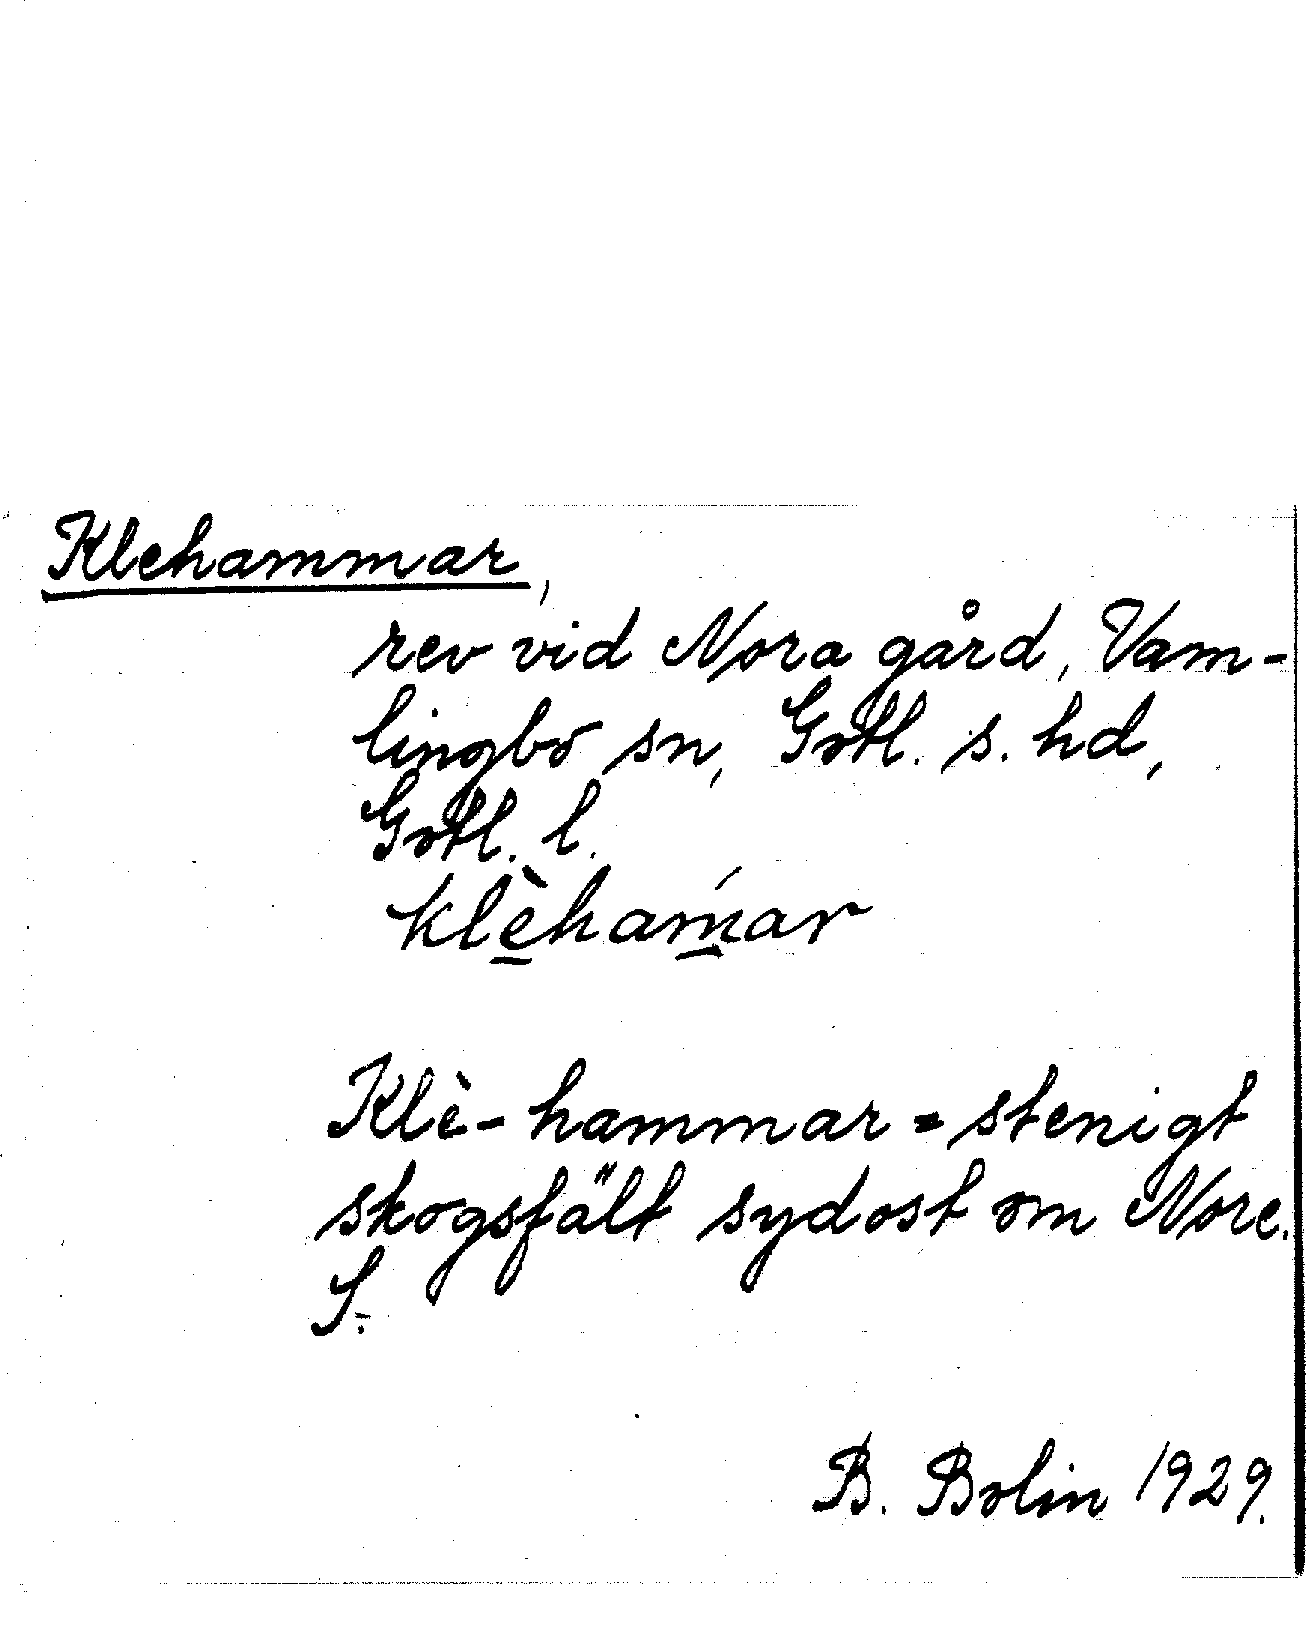 Klehammar,
rev vid Nora gård, Vam-
lingbo sn, Gotl. s. hd,
Gotl. l.
klèhamar
Klè-hammar = stenigt
skogsfält sydost om Nore.
S.
B. Bolin 1929.